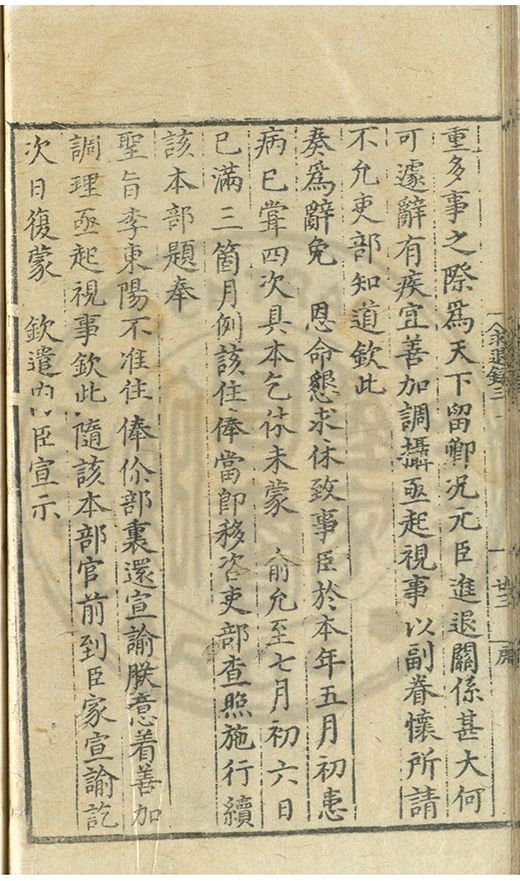 重多事之際爲天下留卿况元臣進退關係甚大何
可遽辭有疾宜善加調攝亟起視事以副眷懷所請
不允吏部知道欽此
奏爲辭免 恩命懇求休致事臣於本年五月初患
病已嘗四次具本乞休未蒙 俞允至七月初六日
已滿三箇月例該住俸當即移咨吏部查照施行續
該本部題奉
聖旨李東陽不准住俸伱部裏還宣諭朕意着善加
調理亟起視事欽此隨該本部官前到臣家宣諭訖
次日復蒙 欽遣内臣宣示
退錄三
廿三